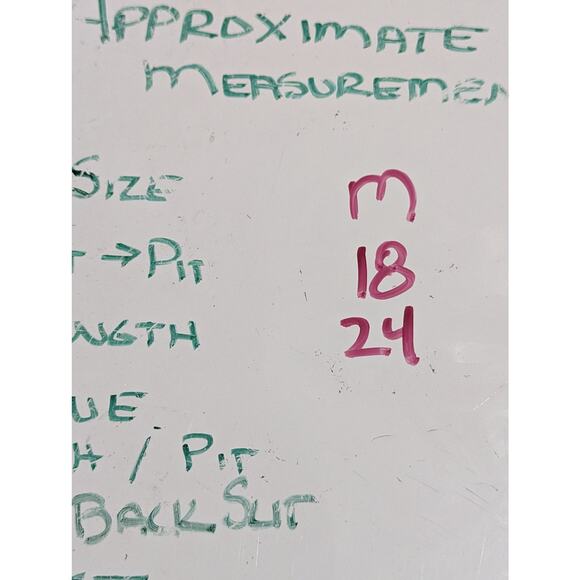 APPROXIMATE
MEASUREMEN
SIZE M
T → PIT 18
NGTH 24
UE
H / PIT
BACK SLIT